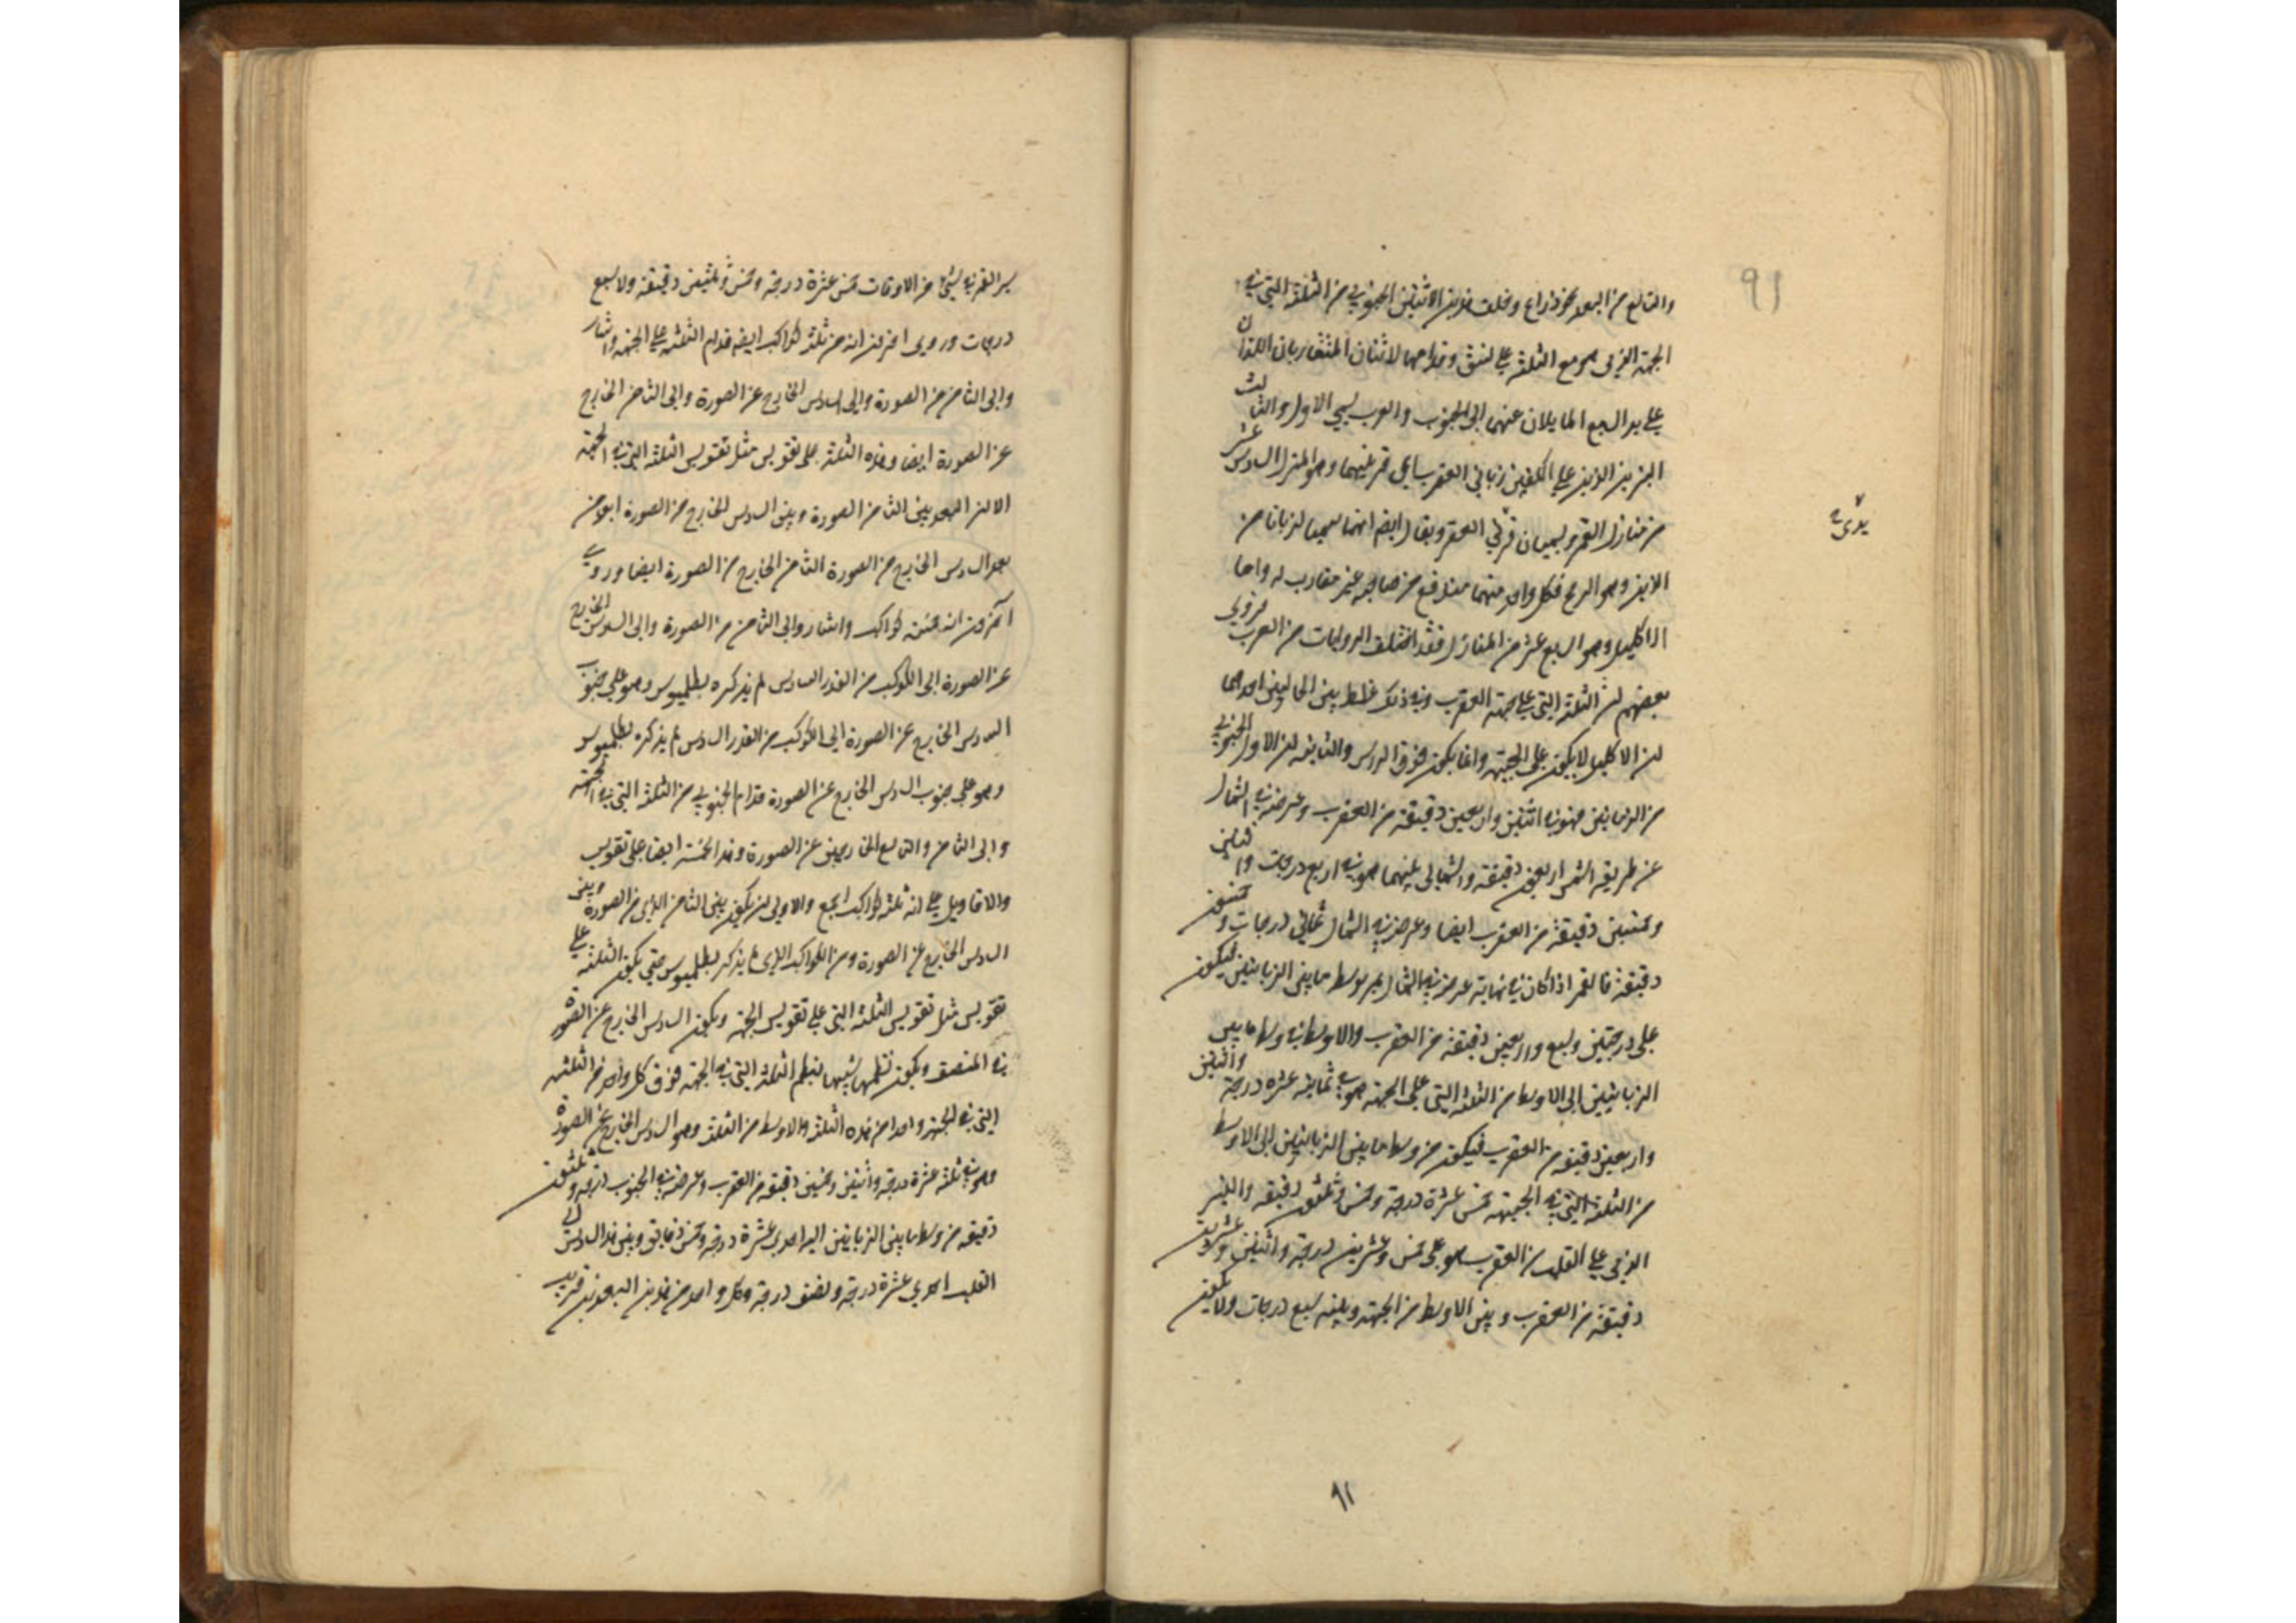 91
والتاسع من البعد نحو ذراع وخلف هذين الاثنين الجنوبي من الثلثة التي في
الجبهة الذي هو مع الثلثة على نسق وقدامها الاثنان المتقاربان اللذان
على يد السبع المايلان عنهما الى الجنوب والعرب يسمي الاول والثالث
النيرين الذين على الكفين زباني العقرب اي قرنيهما وهو المنزل السادس عشر
من منازل القمر ويسميان قرني العقرب ويقال ايضا انهما سميا لزبانا من
الزبن وهو الدفع فكل واحد منهما مندفع من صاحبه غير مقارب له واما
الاكليل وهو السابع عشر من المنازل فقد اختلف الروايات من العرب فروي
بعضهم ان الثلثة التي على جبهة العقرب وفي ذلك غلط بين الحالين احدهما
لان الاكليل لا يكون على الجبهة وانما يكون فوق الراس والثانية لان الاول الجنوبي
من الزبانيين هو في اثنين واربعين دقيقة من العقرب وعرضه في الشمال
عن طريقة الشمس اربعين دقيقة والشمالي منهما هو في اربع درجات واثنتين
وخمسين دقيقة من العقرب ايضا وعرضه في الشمال ثماني درجات وخمسون
دقيقة فالقمر اذا كان في نهاية عرضه في الشمال يمر بوسط ما بين الزبانيين فيكون
على درجتين وسبع واربعين دقيقة من العقرب والاوسط في وسط ما بين
الزبانيين الى الاوسط من الثلثة التي على الجبهة هو في ثمانية عشرة درجة واثنين
واربعين دقيقة من العقرب فيكون من وسط ما بين الزبانيين الى الاوسط
من الثلثة التي في الجبهة خمس عشرة درجة وخمس وثلثون دقيقة والنير
الذي على القلب من العقرب هو على خمس وعشرين درجة واثنين وعشرين
دقيقة من العقرب وبين الاوسط من الجبهة وبينه سبع درجات ولا يكون
91
سير القمر في شيء من الاوقات خمس عشرة درجة وخمس وثلثين دقيقة ولا سبع
درجات وروى اخرون انه من ثلثة كواكب ايضا قدام الثلثة على الجبهة واشار
والى الثامن من الصورة والى السادس الخارج عن الصورة والى الثامن الخارج
عن الصورة ايضا وهذه الثلثة على تقويس مثل تقويس الثلثة التي في الجبهة
الا ان البعد بين الثامن من الصورة وبين السادس الخارج من الصورة ابعد من
بعد السادس الخارج من الصورة الثامن الخارج من الصورة ايضا وروي
آخرون انه خمسة كواكب واشاروا الى الثامن من الصورة والى السادس الخارج
عن الصورة الى الكوكب من القدر السادس لم يذكره بطلميوس وهو على جنوب
السادس الخارج عن الصورة الى الكوكب من القدر السادس لم يذكره بطلميوس
وهو على جنوب السادس الخارج عن الصورة قدام الجنوبي من الثلثة التي في الجبهة
والى الثامن والتاسع الخارجين عن الصورة وهذه الخمسة ايضا على تقويس
والاقاويل على انه ثلثة كواكب اجمع والاولى ان يكون بين الثامن الذي من الصورة وبين
السادس الخارج عن الصورة ومن الكواكب الذي لم يذكر بطلميوس حتى يكون الثلثة على
تقويس مثل تقويس الثلثة التي على تقويس الجبهة ويكون السادس الخارج عن الصورة
في المنتصف ويكون نظمها شبيها بنظم الثلثة التي في الجبهة فوق كل واحد من الثلثة
التي في الجبهة واحدا من هذه الثلثة والاوسط من الثلثة وهو السادس الخارج عن الصورة
وهو في ثلثة عشرة درجة واثنين وخمسين دقيقة من العقرب وعرضه في الجنوب درجة وثلثون
دقيقة من وسط ما بين الزبانيين اليه احدى عشرة درجة وخمس دقايق وبين هذا السادس الى
القلب احدى عشرة درجة ونصف درجة وكل واحد من هذين البعدين قريب